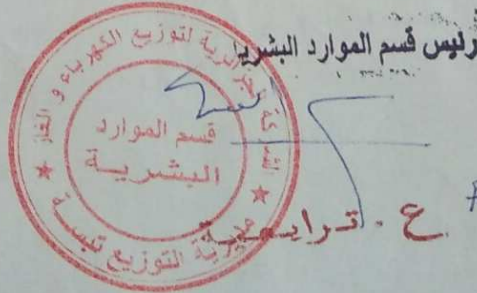 رئيس قسم الموارد البشرية
الشركة الجزائرية لتوزيع الكهرباء و الغاز
قسم الموارد
البشرية
مديرية التوزيع تبسة
ع . ترايعية